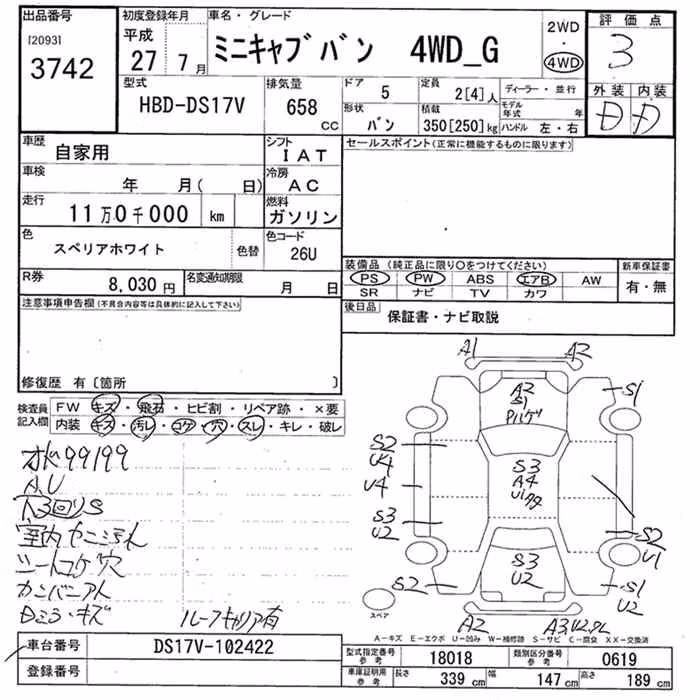 出品番号
[2093]
3742
初度登録年月
平成
27 7月
車名・グレード
ミニキャブバン 4WD_G
2WD
・
4WD
評価点
3
外装 内装
D D
型式
HBD-DS17V
排気量
658 cc
ドア
5
定員
2[4]人
形状
バン
積載
350[250]kg
ディーラー・並行
モデル年式 年
ハンドル 左・右
車歴
自家用
シフト
IAT
車検
年 月( 日)
冷房
AC
走行
11万0千000 km
燃料
ガソリン
色
スペリアホワイト
色替
色コード
26U
R券
8,030円
名変通知期限
月 日
セールスポイント(正常に機能するものに限ります)
装備品(純正品に限り○をつけてください)
PS PW ABS エアB AW
SR ナビ TV カワ
新車保証書
有・無
後日品
保証書・ナビ取説
注意事項申告欄(不具合内容等は具体的に記入して下さい)
修復歴 有〔箇所 〕
検査員記入欄
FW キズ・飛石・ヒビ割・リペア跡・×要
内装 キズ・汚レ・コゲ・穴・スレ・キレ・破レ
99199
A、U
下回りS
室内ヤニ汚れ
シートコゲ穴
カンバンアト
Dミラーキズ
ルーフキャリア有
A1 A2
A2
S1
S1
S2
U4
U4
S3
U2
S2
S3
A4
U1
S3
U2
S2
U1
S1
U2
A2
A3
スペア
A-キズ E-エクボ U-凹み W-補修跡 S-サビ C-腐食 XX-交換済
車台番号
DS17V-102422
登録番号
型式指定番号 参考
18018
類別区分番号 参考
0619
車庫証明用 参考
長さ 339 cm
幅 147 cm
高さ 189 cm